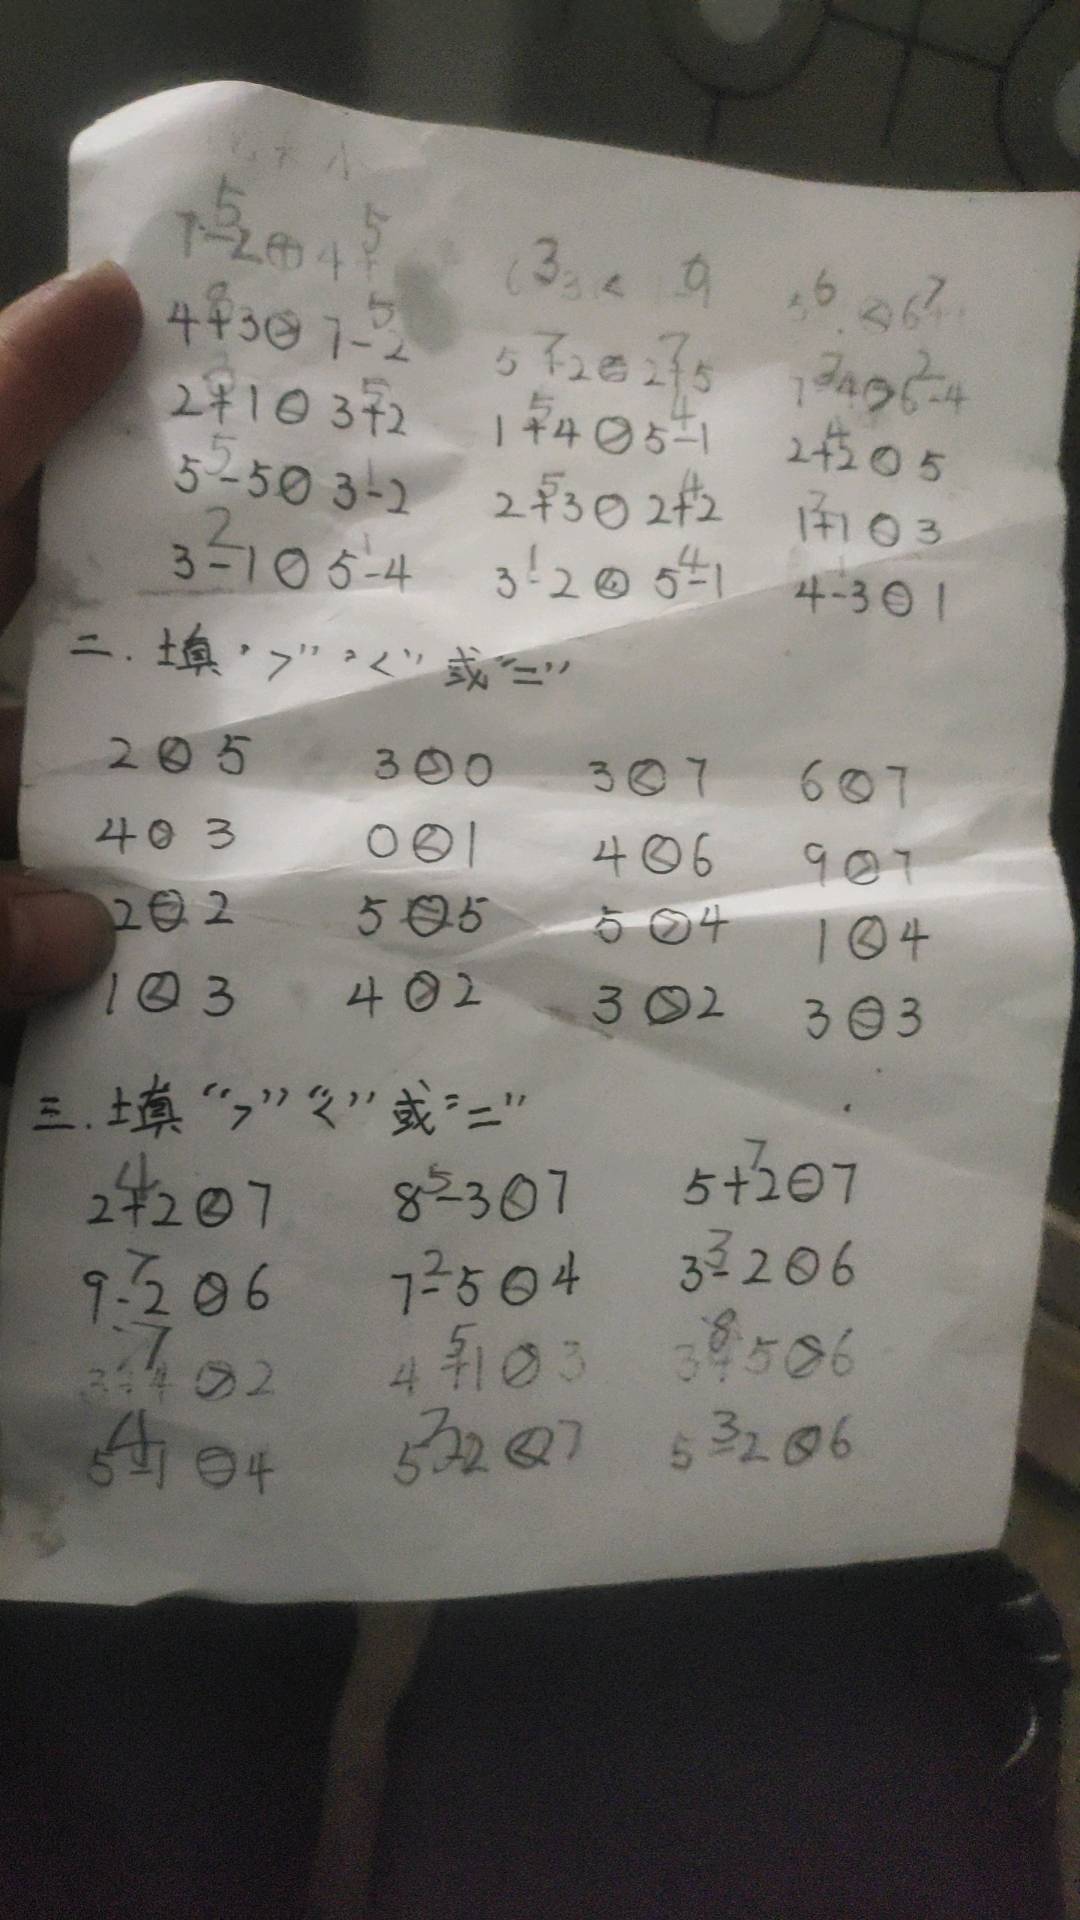 7-2 5 = 4+ 5 3 3 < 9 6 < 6+ 7
4+3 8 > 7-2 5 5+2 7 = 2+5 7 7-4 3 > 6-4 2
2+1 3 3+2 5 1+4 5 > 5-1 4 2+2 4 5
5-5 5 3-2 1 2+3 5 2+2 4 1+1 2 3
3-1 2 5-4 1 3-2 1 < 5-1 4 4-3 1 = 1
二.填“>”“<”或“=”
2<5 3>0 3<7 6<7
4>3 0<1 4<6 9>7
2=2 5=5 5>4 1<4
1<3 4>2 3>2 3=3
三.填“>”“<”或“=”
2+2 4 < 7 8-3 5 < 7 5+2 7 = 7
9-2 7 > 6 7-5 2 < 4 3-2 3 < 6
3+4 7 > 2 4+1 5 > 3 3+5 8 > 6
5-1 4 = 4 5-2 < 7 5-2 3 < 6